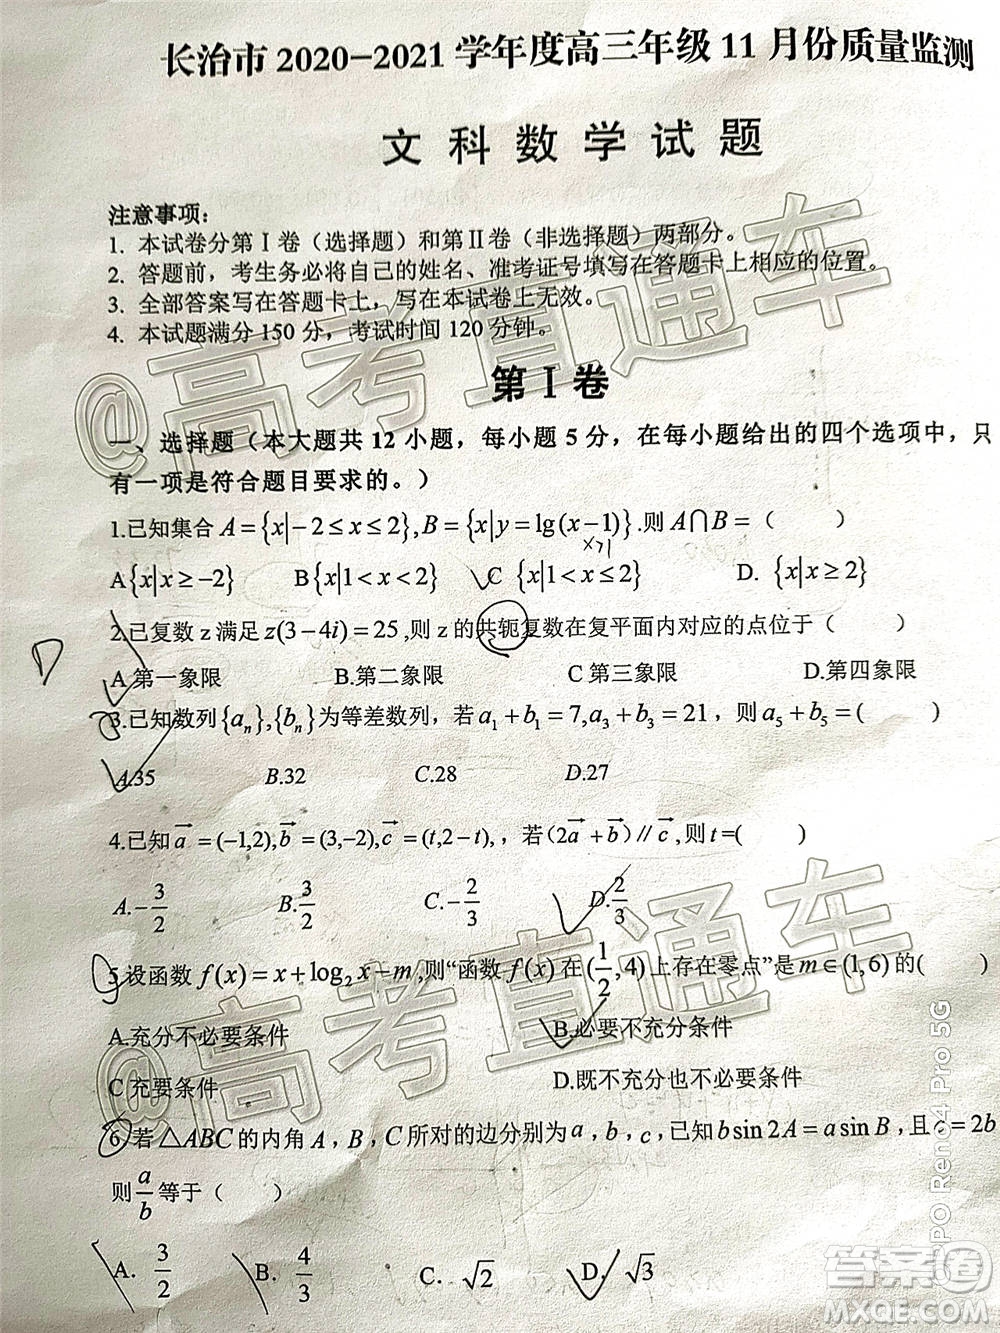 长治市 2020-2021 学年度高三年级 11 月份质量监测
文科数学试题
注意事项:
1. 本试卷分第Ⅰ卷（选择题）和第Ⅱ卷（非选择题）两部分。
2. 答题前，考生务必将自己的姓名、准考证号填写在答题卡上相应的位置。
3. 全部答案写在答题卡上，写在本试卷上无效。
4. 本试题满分 150 分，考试时间 120 分钟。
@高考直通车
第Ⅰ卷
一、选择题（本大题共 12 小题，每小题 5 分，在每小题给出的四个选项中，只
有一项是符合题目要求的。）
1.已知集合 A={x|−2≤x≤2},B={x|y=lg(x−1)}.则 A∩B=（ ）
x>1
A{x|x≥−2} B{x|1<x<2} C {x|1<x≤2} D. {x|x≥2}
2.已复数 z 满足 z(3−4i)=25,则 z 的共轭复数在复平面内对应的点位于（ ）
D
A 第一象限 B.第二象限 C.第三象限 D.第四象限
3.已知数列{aₙ},{bₙ}为等差数列，若 a₁+b₁=7,a₃+b₃=21，则 a₅+b₅=( )
A.35 B.32 C.28 D.27
4.已知 a⃗=(−1,2),b⃗=(3,−2),c⃗=(t,2−t),，若（2a⃗+b⃗）∥c⃗,则 t=( )
A.−3/2 B.3/2 C.−2/3 D.2/3
5.设函数 f(x)=x+log₂x−m,则“函数 f(x)在(1/2,4)上存在零点”是 m∈(1,6)的( )
A.充分不必要条件 B.必要不充分条件
C 充要条件 D.既不充分也不必要条件
@高考直通车
6.若△ABC 的内角 A，B，C 所对的边分别为 a，b，c,已知 b sin 2A=a sin B，且 c=2b
则 a/b 等于（ ）
A. 3/2 B. 4/3 C. √2 D. √3
OPPO Reno4 Pro 5G
答案圈
MXQE.COM